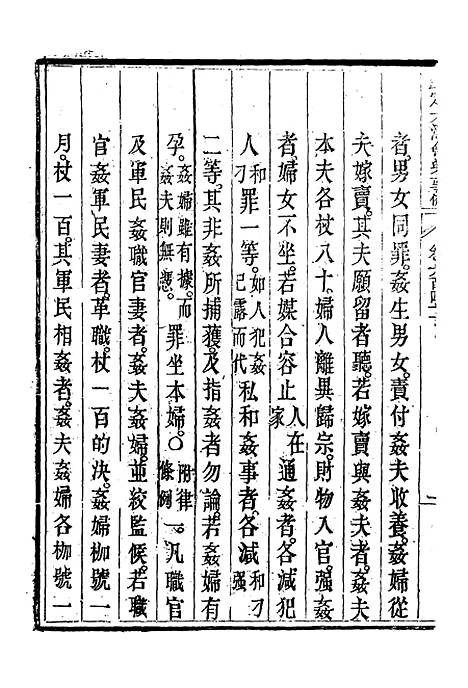 者男女同罪姦生男女責付姦夫收養姦婦從
夫嫁賣其夫願留者聽若嫁賣與姦夫者姦夫
本夫各杖八十婦人離異歸宗財物入官强姦
者婦女不坐若媒合容止人在家通姦者各減犯
人和刁罪一等如人犯姦已露而代私和姦事者各減和刁强
二等其非姦所捕獲及指姦者勿論若姦婦有
孕姦婦雖有據而姦夫則無憑罪坐本婦〇附律條例一凡職官
及軍民姦職官妻者姦夫姦婦並絞監候若職
官姦軍民妻者革職杖一百的決姦婦枷號一
月杖一百其軍民相姦者姦夫姦婦各枷號一